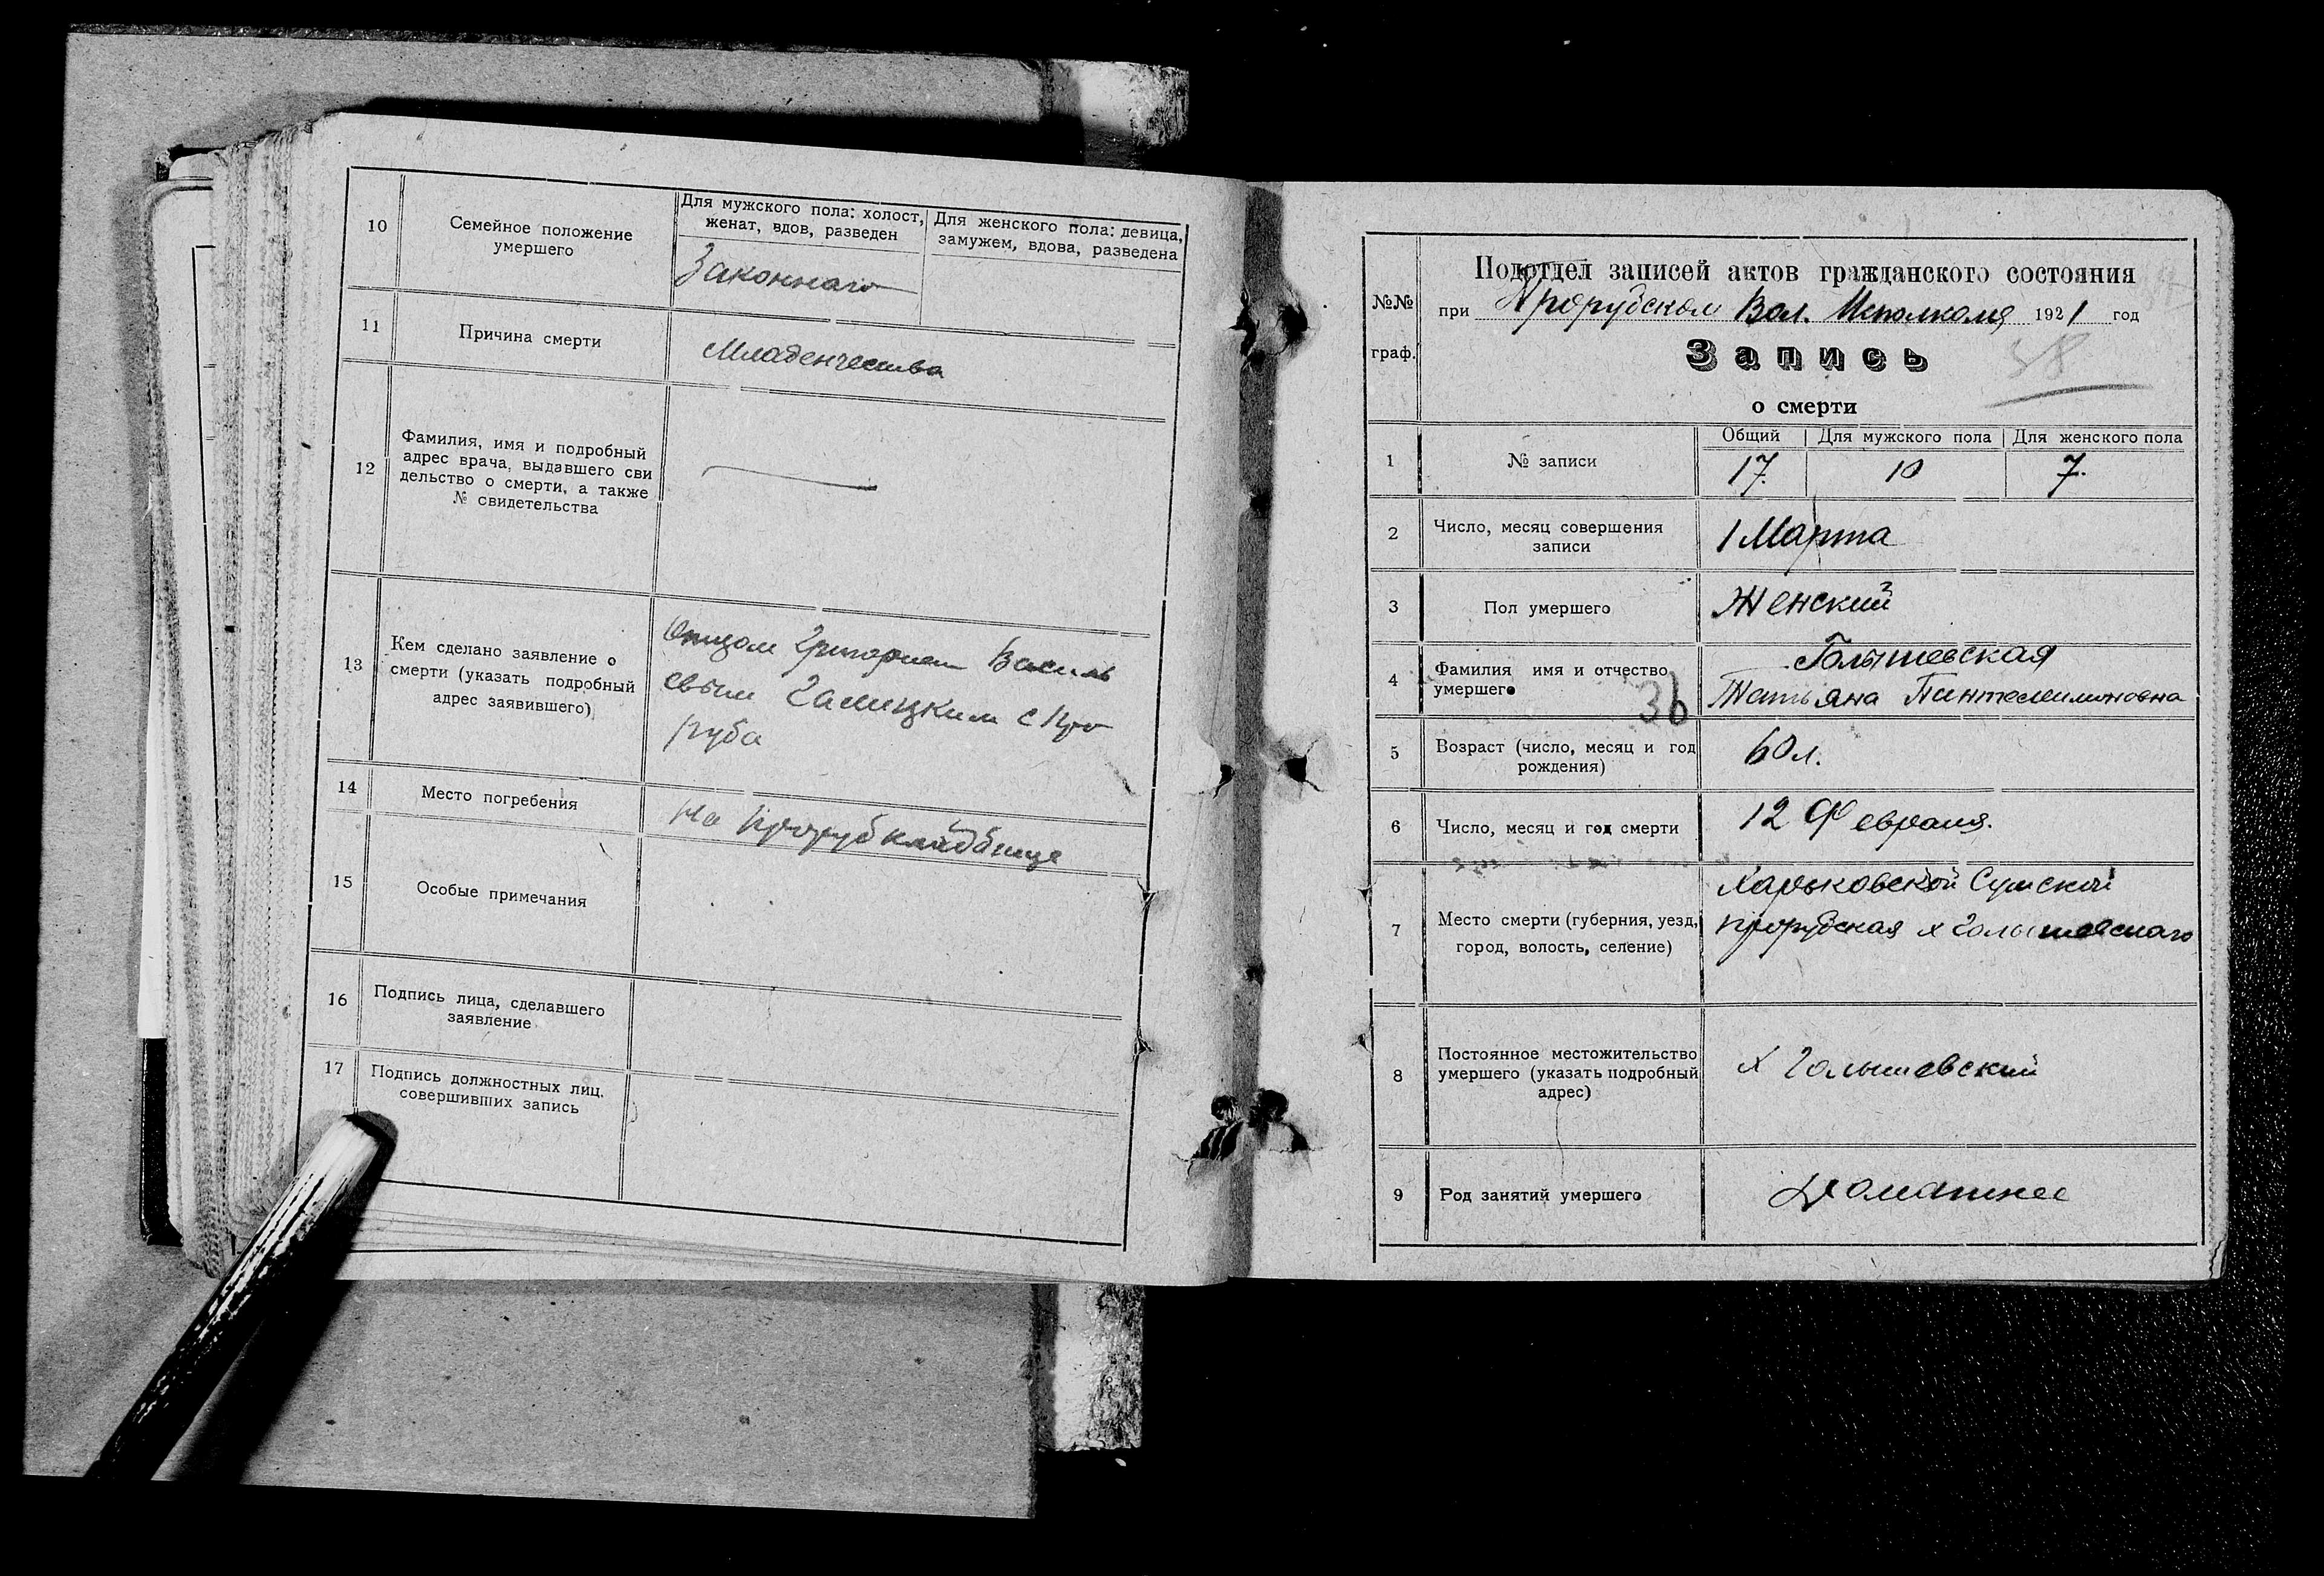 10
Семейное положение
умершего
Для мужского пола: холост,
женат, вдов, разведен
Для женского пола: девица,
замужем, вдова, разведена
Законнаго
11
Причина смерти
Младенчества
12
Фамилия, имя и подробный
адрес врача, выдавшего сви
дельство о смерти, а также
№ свидетельства
13
Кем сделано заявление о
смерти (указать подробный
адрес заявившего)
Отцом Григорием Василь
евым Галицким с Про
руба
14
Место погребения
на Проруб кладбище
15
Особые примечания
16
Подпись лица, сделавшего
заявление
17
Подпись должностных лиц,
совершивших запись
№№
граф.
Подотдел записей актов гражданского состояния
при Прорубском Вол. Исполкоме 1921 год
Запись
38
о смерти
1
№ записи
Общий
Для мужского пола
Для женского пола
17.
10
7.
2
Число, месяц совершения
записи
1 Марта
3
Пол умершего
Женский
4
Фамилия имя и отчество
умершего
36
Голышевская
Татьяна Пантелимоновна
5
Возраст (число, месяц и год
рождения)
60 л.
6
Число, месяц и год смерти
12 Февраля.
7
Место смерти (губерния, уезд,
город, волость, селение)
Харьковской Сумской
Прорубская х Голышевскаго
8
Постоянное местожительство
умершего (указать подробный
адрес)
х Голышевский
9
Род занятий умершего
Домашнее